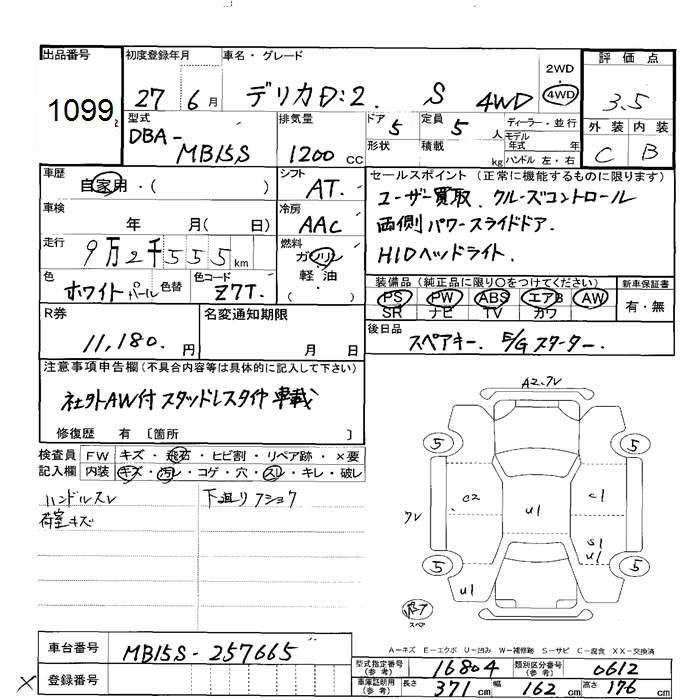 出品番号 初度登録年月 車名・グレード 評価点
1099 27年6月 デリカD:2. S 4WD 2WD 4WD 3.5
型式 排気量 ドア 5 定員 5人 ディーラー・並行 外装 内装
DBA-MB15S 1200cc 形状 積載 kg モデル年式 年 ハンドル 左・右 C B
車歴 自家用・( ) シフト AT. セールスポイント (正常に機能するものに限ります)
車検 年 月( 日) 冷房 AAC ユーザー買取、クルーズコントロール
両側パワースライドドア.
走行 9万2千555km 燃料 ガソリン・軽油・( ) HIDヘッドライト.
色 ホワイトパール 色替 色コード Z7T. 装備品(純正品に限り○をつけてください) 新車保証書
PS PW ABS エアB AW 有・無
SR ナビ TV カワ
R券 11,180.円 名変通知期限 月 日 後日品 スペアキー. E/Gスターター.
注意事項申告欄(不具合内容等は具体的に記入して下さい)
社外AW付スタッドレスタイヤ車載
修復歴 有 〔箇所 〕
検査員 FW キズ・飛石・ヒビ割・リペア跡・×要
記入欄 内装 キズ・汚れ・コゲ・穴・スレ・キレ・破レ
ハンドルスレ 下廻りアショウ
荷室キズ
A2.7V
5 5
C2 C1
7V U1
S1
U1
5 5
U1
スペア
A-キズ E-エクボ U-凹み W-補修跡 S-サビ C-腐食 XX-交換済
車台番号 MB15S-257665
登録番号
型式指定番号(参考) 16804 類別区分番号(参考) 0612
車庫証明用(参考) 長さ 371cm 幅 162cm 高さ 176cm